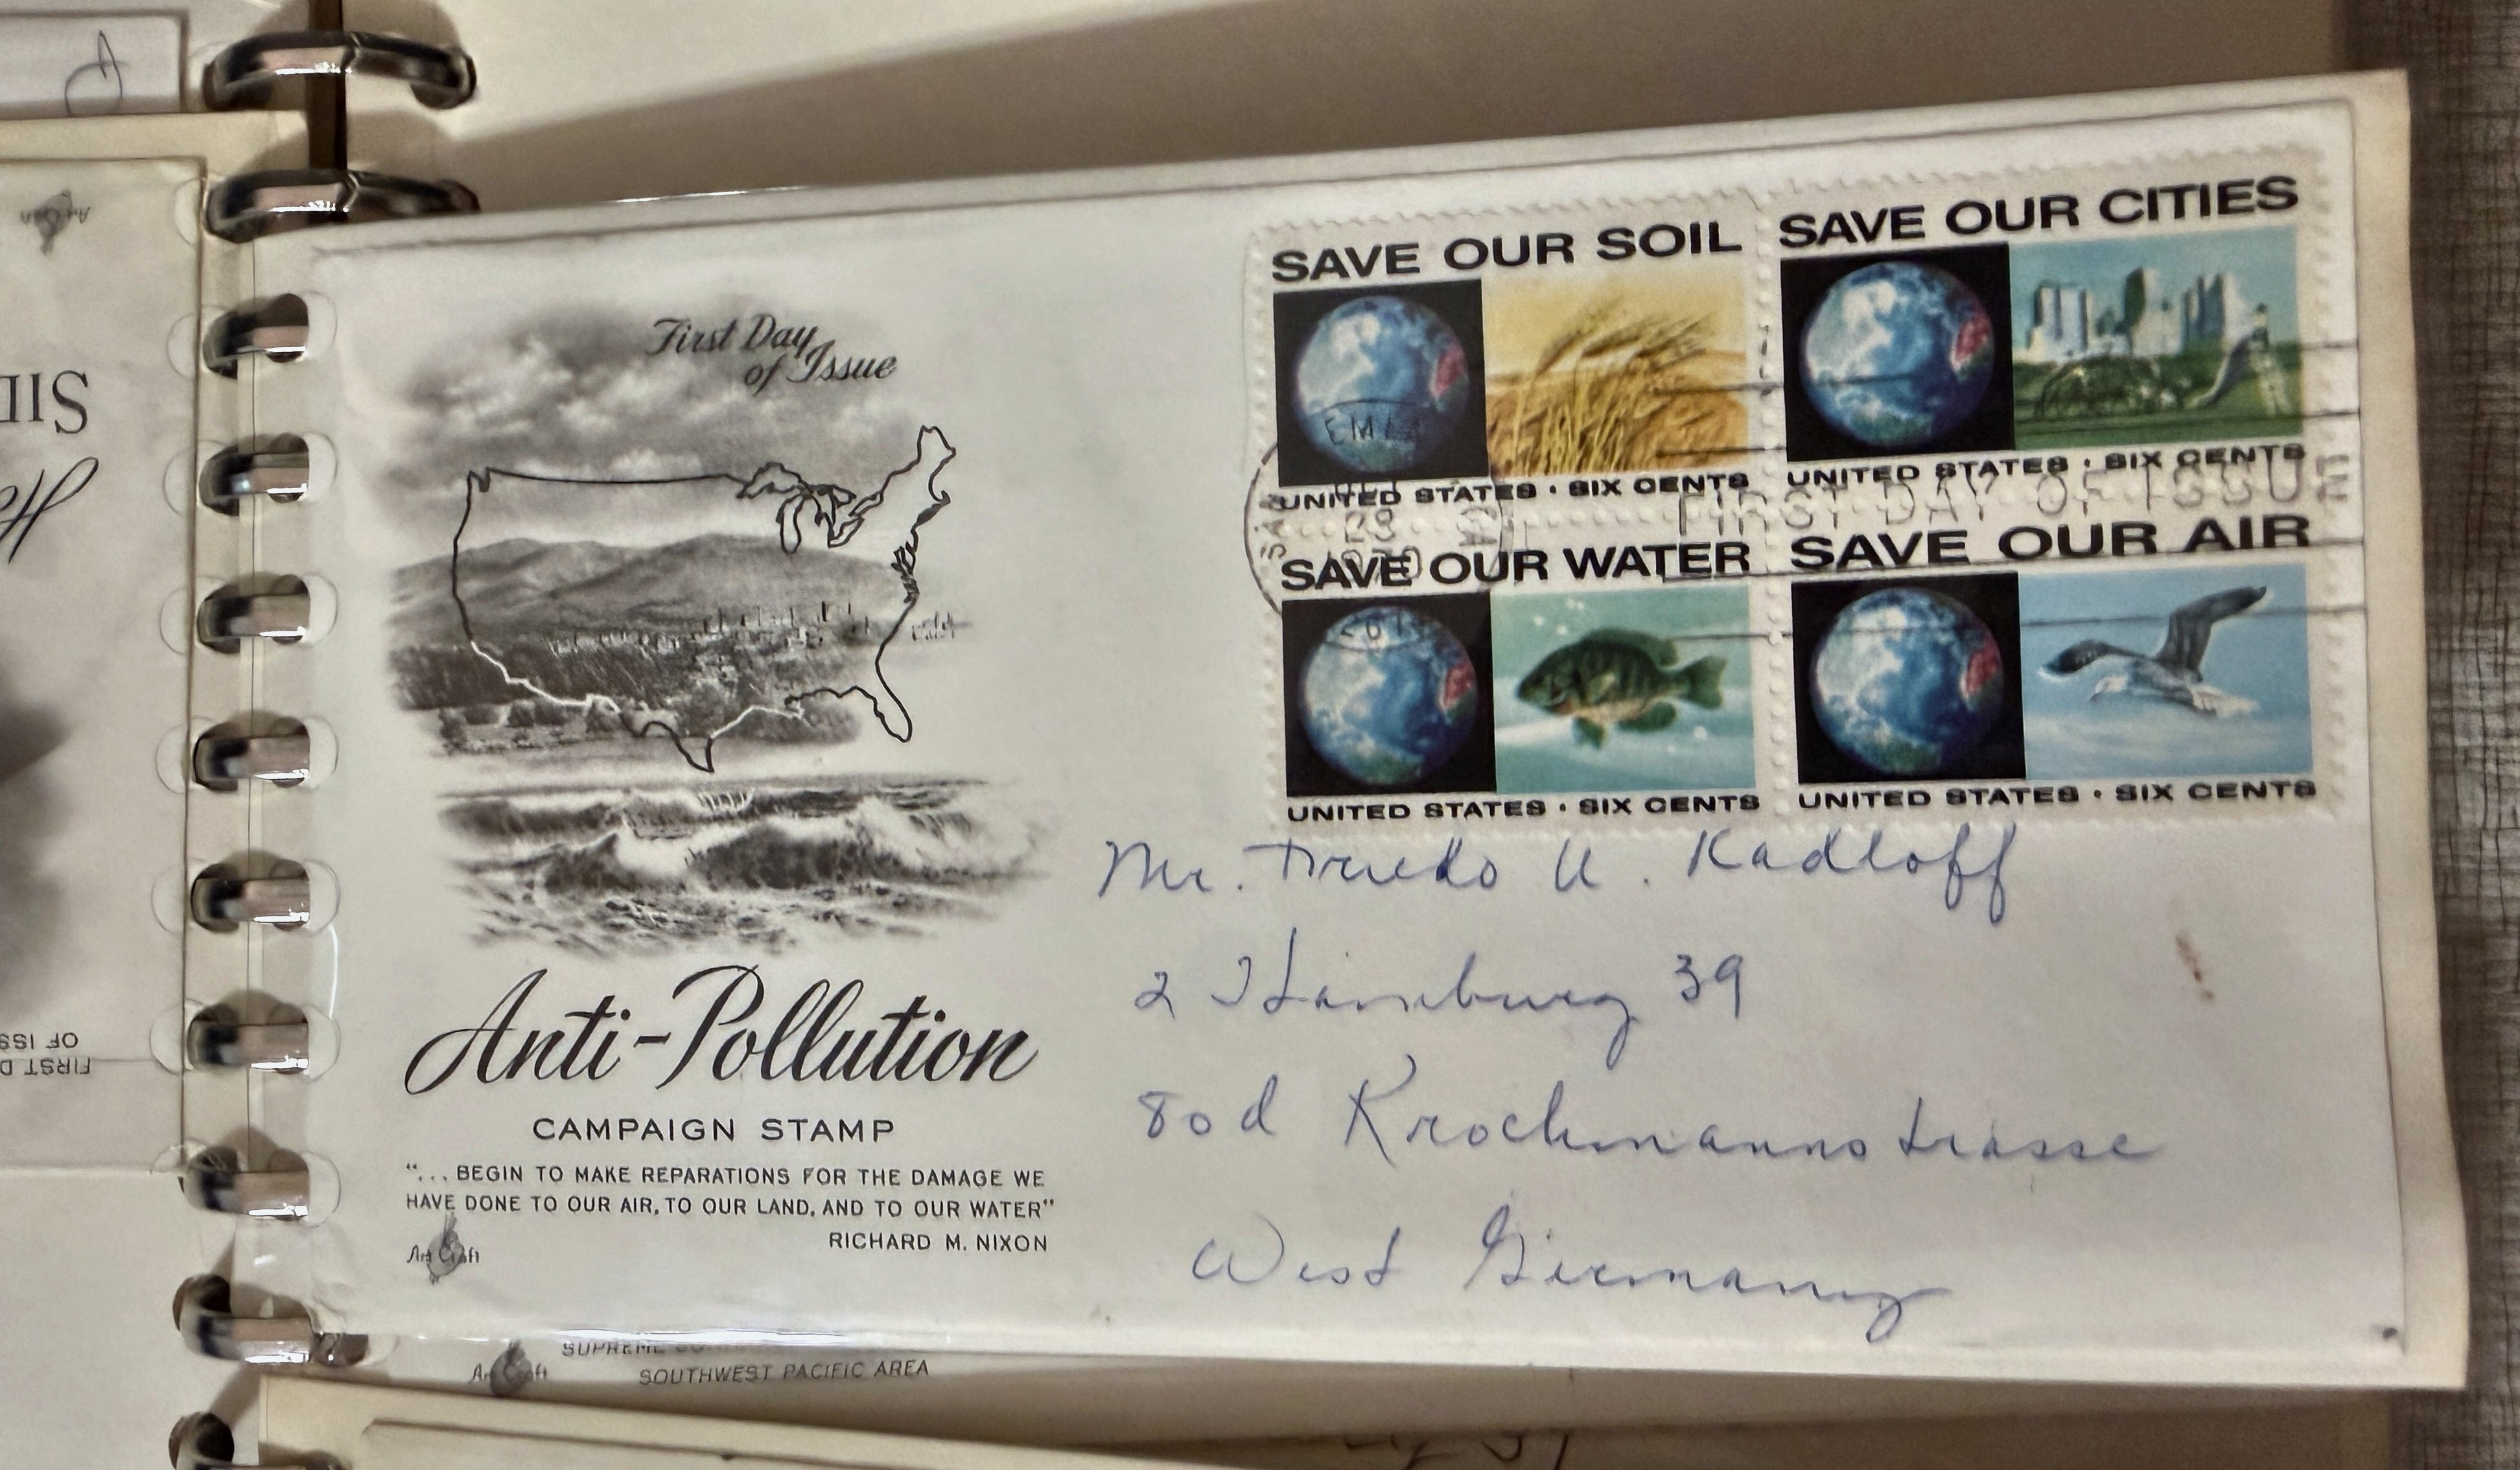 First Day
of Issue
SAVE OUR SOIL
UNITED STATES · SIX CENTS
SAVE OUR CITIES
UNITED STATES · SIX CENTS
FIRST DAY OF ISSUE
28
1970
SAVE OUR WATER
UNITED STATES · SIX CENTS
SAVE OUR AIR
UNITED STATES · SIX CENTS
Mr. U. Kadloff
2 Hamburg 39
80d Krochmannstrasse
West Germany
Anti-Pollution
CAMPAIGN STAMP
“... BEGIN TO MAKE REPARATIONS FOR THE DAMAGE WE
HAVE DONE TO OUR AIR, TO OUR LAND, AND TO OUR WATER”
RICHARD M. NIXON
Art Craft
SUPREME
Art Craft
SOUTHWEST PACIFIC AREA
Art Craft
OF ISS
FIRST D